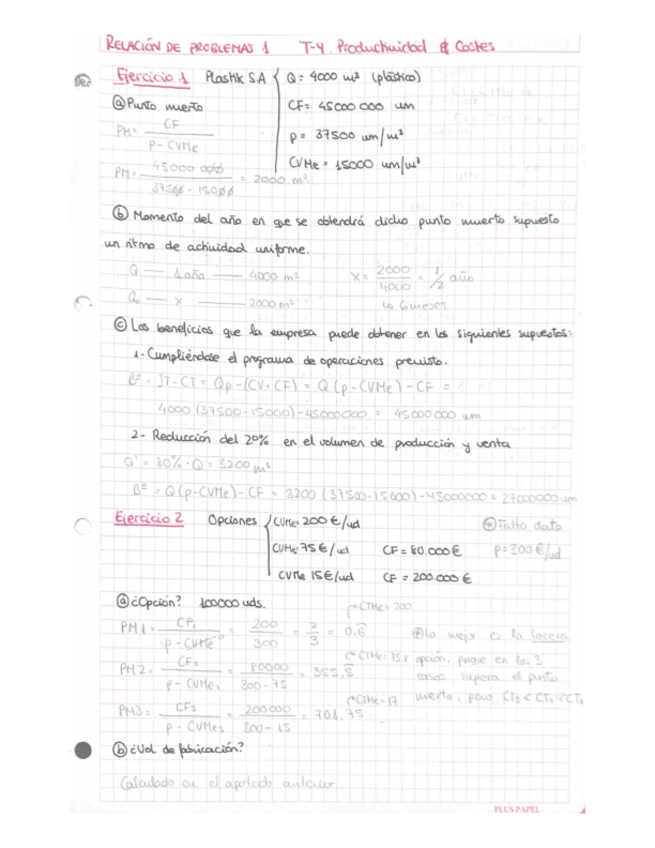 RELACIÓN DE PROBLEMAS 1 T-4 Productividad & Costes
Ejercicio 1 Plastik S.A Q = 4000 m³ (plástico)
ⓐ Punto muerto CF = 45000 000 um
PM = CF / P - CVMe p = 37500 um/m³
CVMe = 15000 um/m³
PM = 45000 000 / 37500 - 15000 = 2000 m³
ⓑ Momento del año en que se obtendrá dicho punto muerto supuesto
un ritmo de actividad uniforme.
Q — 1 año — 4000 m³ X = 2000 / 4000 = 1/2 año
Q₀ — x — 2000 m³ 6 meses
ⓒ Los beneficios que la empresa puede obtener en los siguientes supuestos:
1- Cumpliéndose el programa de operaciones previsto.
Bº = IT - CT = Qp - (CV + CF) = Q (p - CVMe) - CF =
4000 (37500 - 15000) - 45000000 = 45000000 um
2- Reducción del 20% en el volumen de producción y venta
Q' = 80% · Q = 3200 m³
Bº = Q(p - CVMe) - CF = 3200 (37500 - 15000) - 45000000 = 27000000 um
Ejercicio 2 Opciones CVMe = 200 €/ud Falta dato
CVMe 75 €/ud CF = 80.000 € p = 300 €/ud
CVMe 15 €/ud CF = 200.000 €
ⓐ ¿Opción? 100000 uds.
PM1 = CF₁ / p - CVMe = 200 / 300 = 2/3 = 0.6 la mejor es la tercera
opción, porque en los 3
PM2 = CF₂ / p - CVMe₂ = 80000 / 300 - 75 = 355.5 casos supera el punto
CTMe = 17 muerto, pero
PM3 = CF₃ / p - CVMe₃ = 200000 / 300 - 15 = 701.75
ⓑ ¿Vol. de fabricación?
Calculado en el apartado anterior
PLUS PAPEL